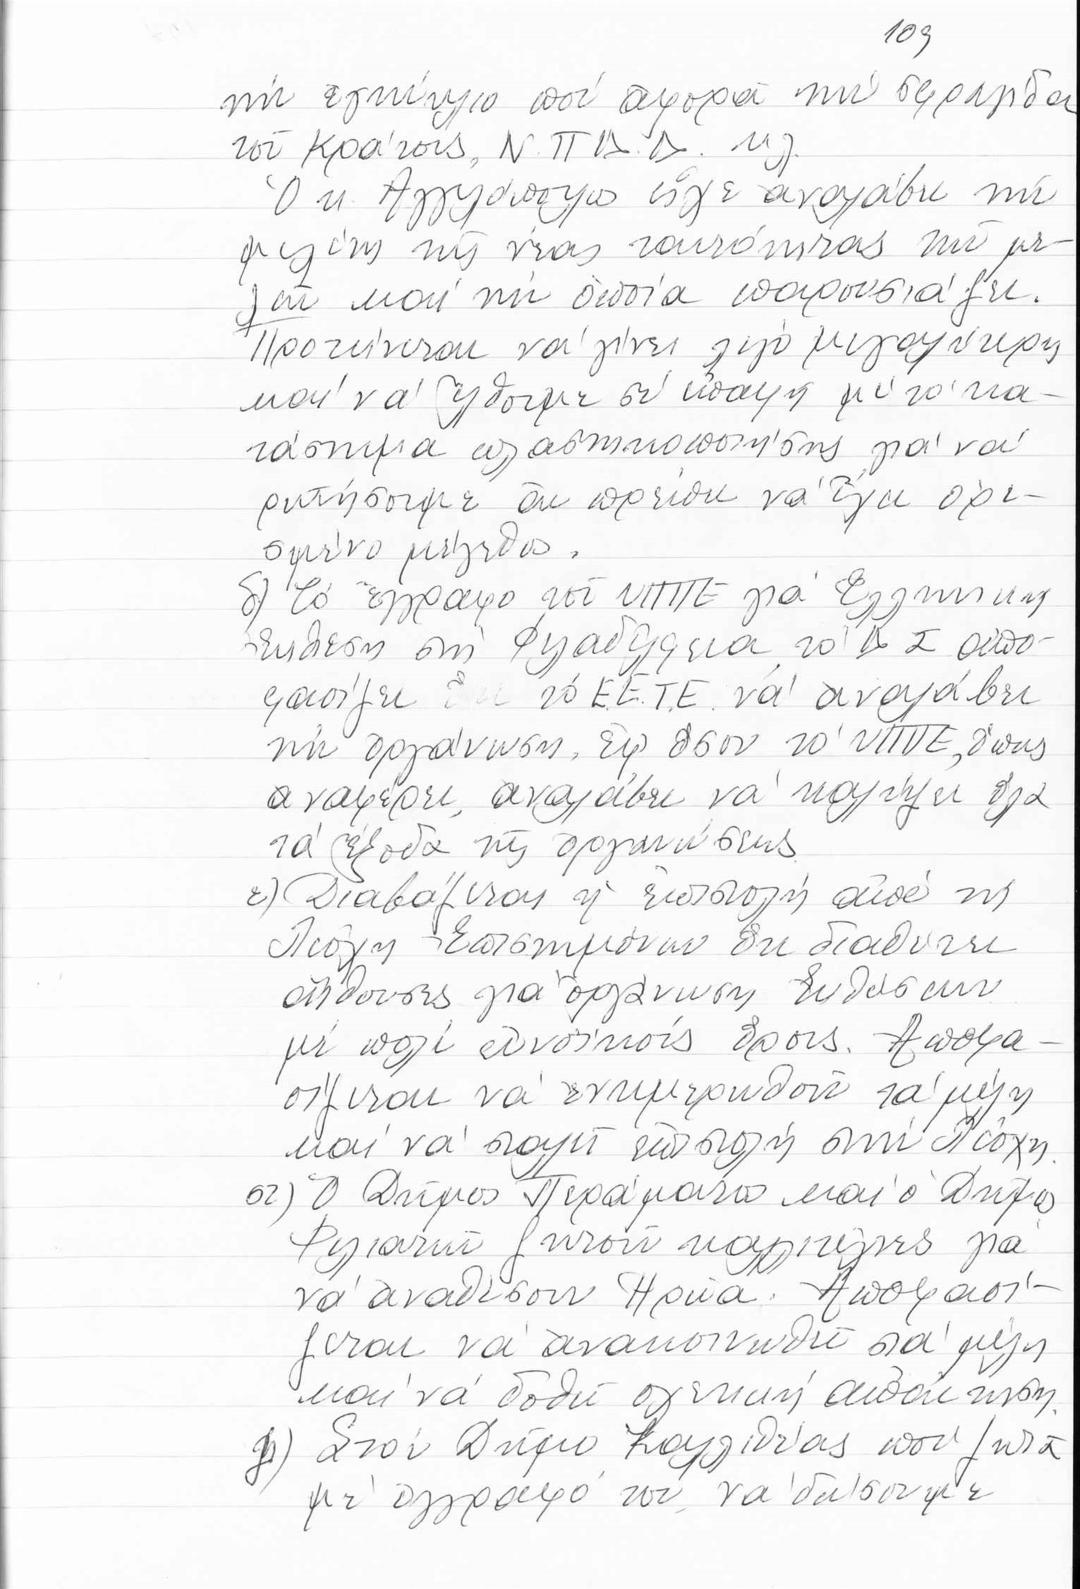 109
τήν ἐγκύκλιο πού ἀφορᾶ τήν σφραγίδα
τοῦ Κράτους, Ν.Π.Δ.Δ. κλ.
Ὁ κ. Ἀγγελόπουλος εἶχε ἀναλάβει τήν
μελέτη τῆς νέας ταυτότητας τῶν με-
λῶν καί τήν ὁποία παρουσιάζει.
Προτείνεται νά γίνει λίγο μεγαλύτερη
καί νά ἔλθουμε σέ ἐπαφή μέ τό κα-
τάστημα πλαστικοποιήσης γιά νά
ρωτήσουμε ἄν πρέπει νά ἔχει ὁρι-
σμένο μέγεθος.
δ) Τό ἔγγραφο τοῦ ΥΠΠΕ γιά Ἑλληνική
Ἔκθεση στή Φιλαδέλφεια, τό ΔΣ ἀπο-
φασίζει τό Ε.Ε.Τ.Ε. νά ἀναλάβει
τήν ὀργάνωση, ἐφ' ὅσον τό ΥΠΠΕ, ὅπως
ἀναφέρει, ἀναλάβει νά καλύψει ὅλα
τά ἔξοδα τῆς ὀργανώσεως.
ε) Διαβάζεται ἡ ἐπιστολή ἀπό τή
Λέσχη Ἐπιστημόνων ὅτι διαθέτει
αἴθουσες γιά ὀργάνωση ἐκθέσεων
μέ πολύ εὐνοϊκούς ὅρους. Ἀποφα-
σίζεται νά ἐνημερωθοῦν τά μέλη
καί νά σταλεῖ ἐπιστολή στήν Λέσχη.
στ) Ὁ Δῆμος Περάματος καί ὁ Δῆμος
Φιλιατῶν ζητοῦν καλλιτέχνες γιά
νά ἀναθέσουν Ἡρῶα. Ἀποφασί-
ζεται νά ἀνακοινωθεῖ στά μέλη
καί νά δοθεῖ σχετική ἀπάντηση.
ζ) Στόν Δῆμο Καλλιθέας πού ζητᾶ
μέ ἔγγραφό του, νά δώσουμε